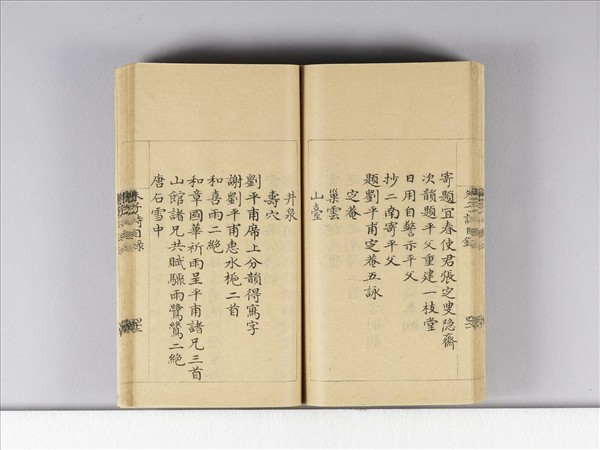 寄題宜春使君張定叟隐齋
次韻題平父重建一枝堂
日用自警示平父
抄二南寄平父
題劉平甫定菴五詠
定菴
巢雲
山臺
井泉
壽穴
劉平甫席上分韻得寫字
謝劉平甫惠水梔二首
和喜雨二絶
和章國華祈雨呈平甫諸兄三首
山館諸兄共賦驟雨鷺鷥二絶
唐石雪中